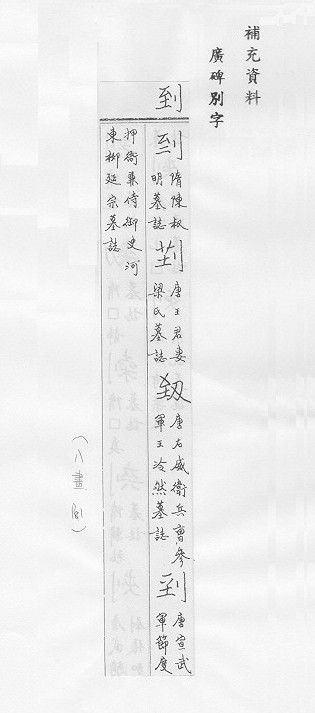 補充資料
廣碑別字
到
隋陳叔
明墓誌
唐王君妻
梁氏墓誌
唐右威衛兵曹參
軍王冷然墓誌
到
唐宣武
軍節度
押衙兼侍御史河
東柳延宗墓誌
(八畫